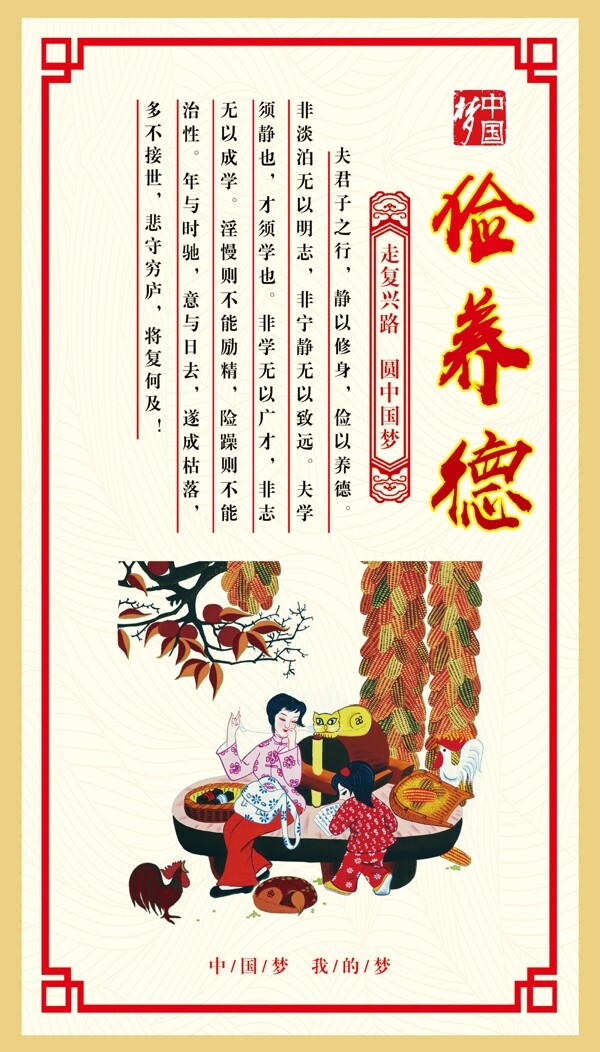 中国梦
俭养德
走复兴路 圆中国梦
夫君子之行，静以修身，俭以养德。
非淡泊无以明志，非宁静无以致远。夫学
须静也，才须学也。非学无以广才，非志
无以成学。淫慢则不能励精，险躁则不能
治性。年与时驰，意与日去，遂成枯落，
多不接世，悲守穷庐，将复何及！
中/国/梦 我/的/梦